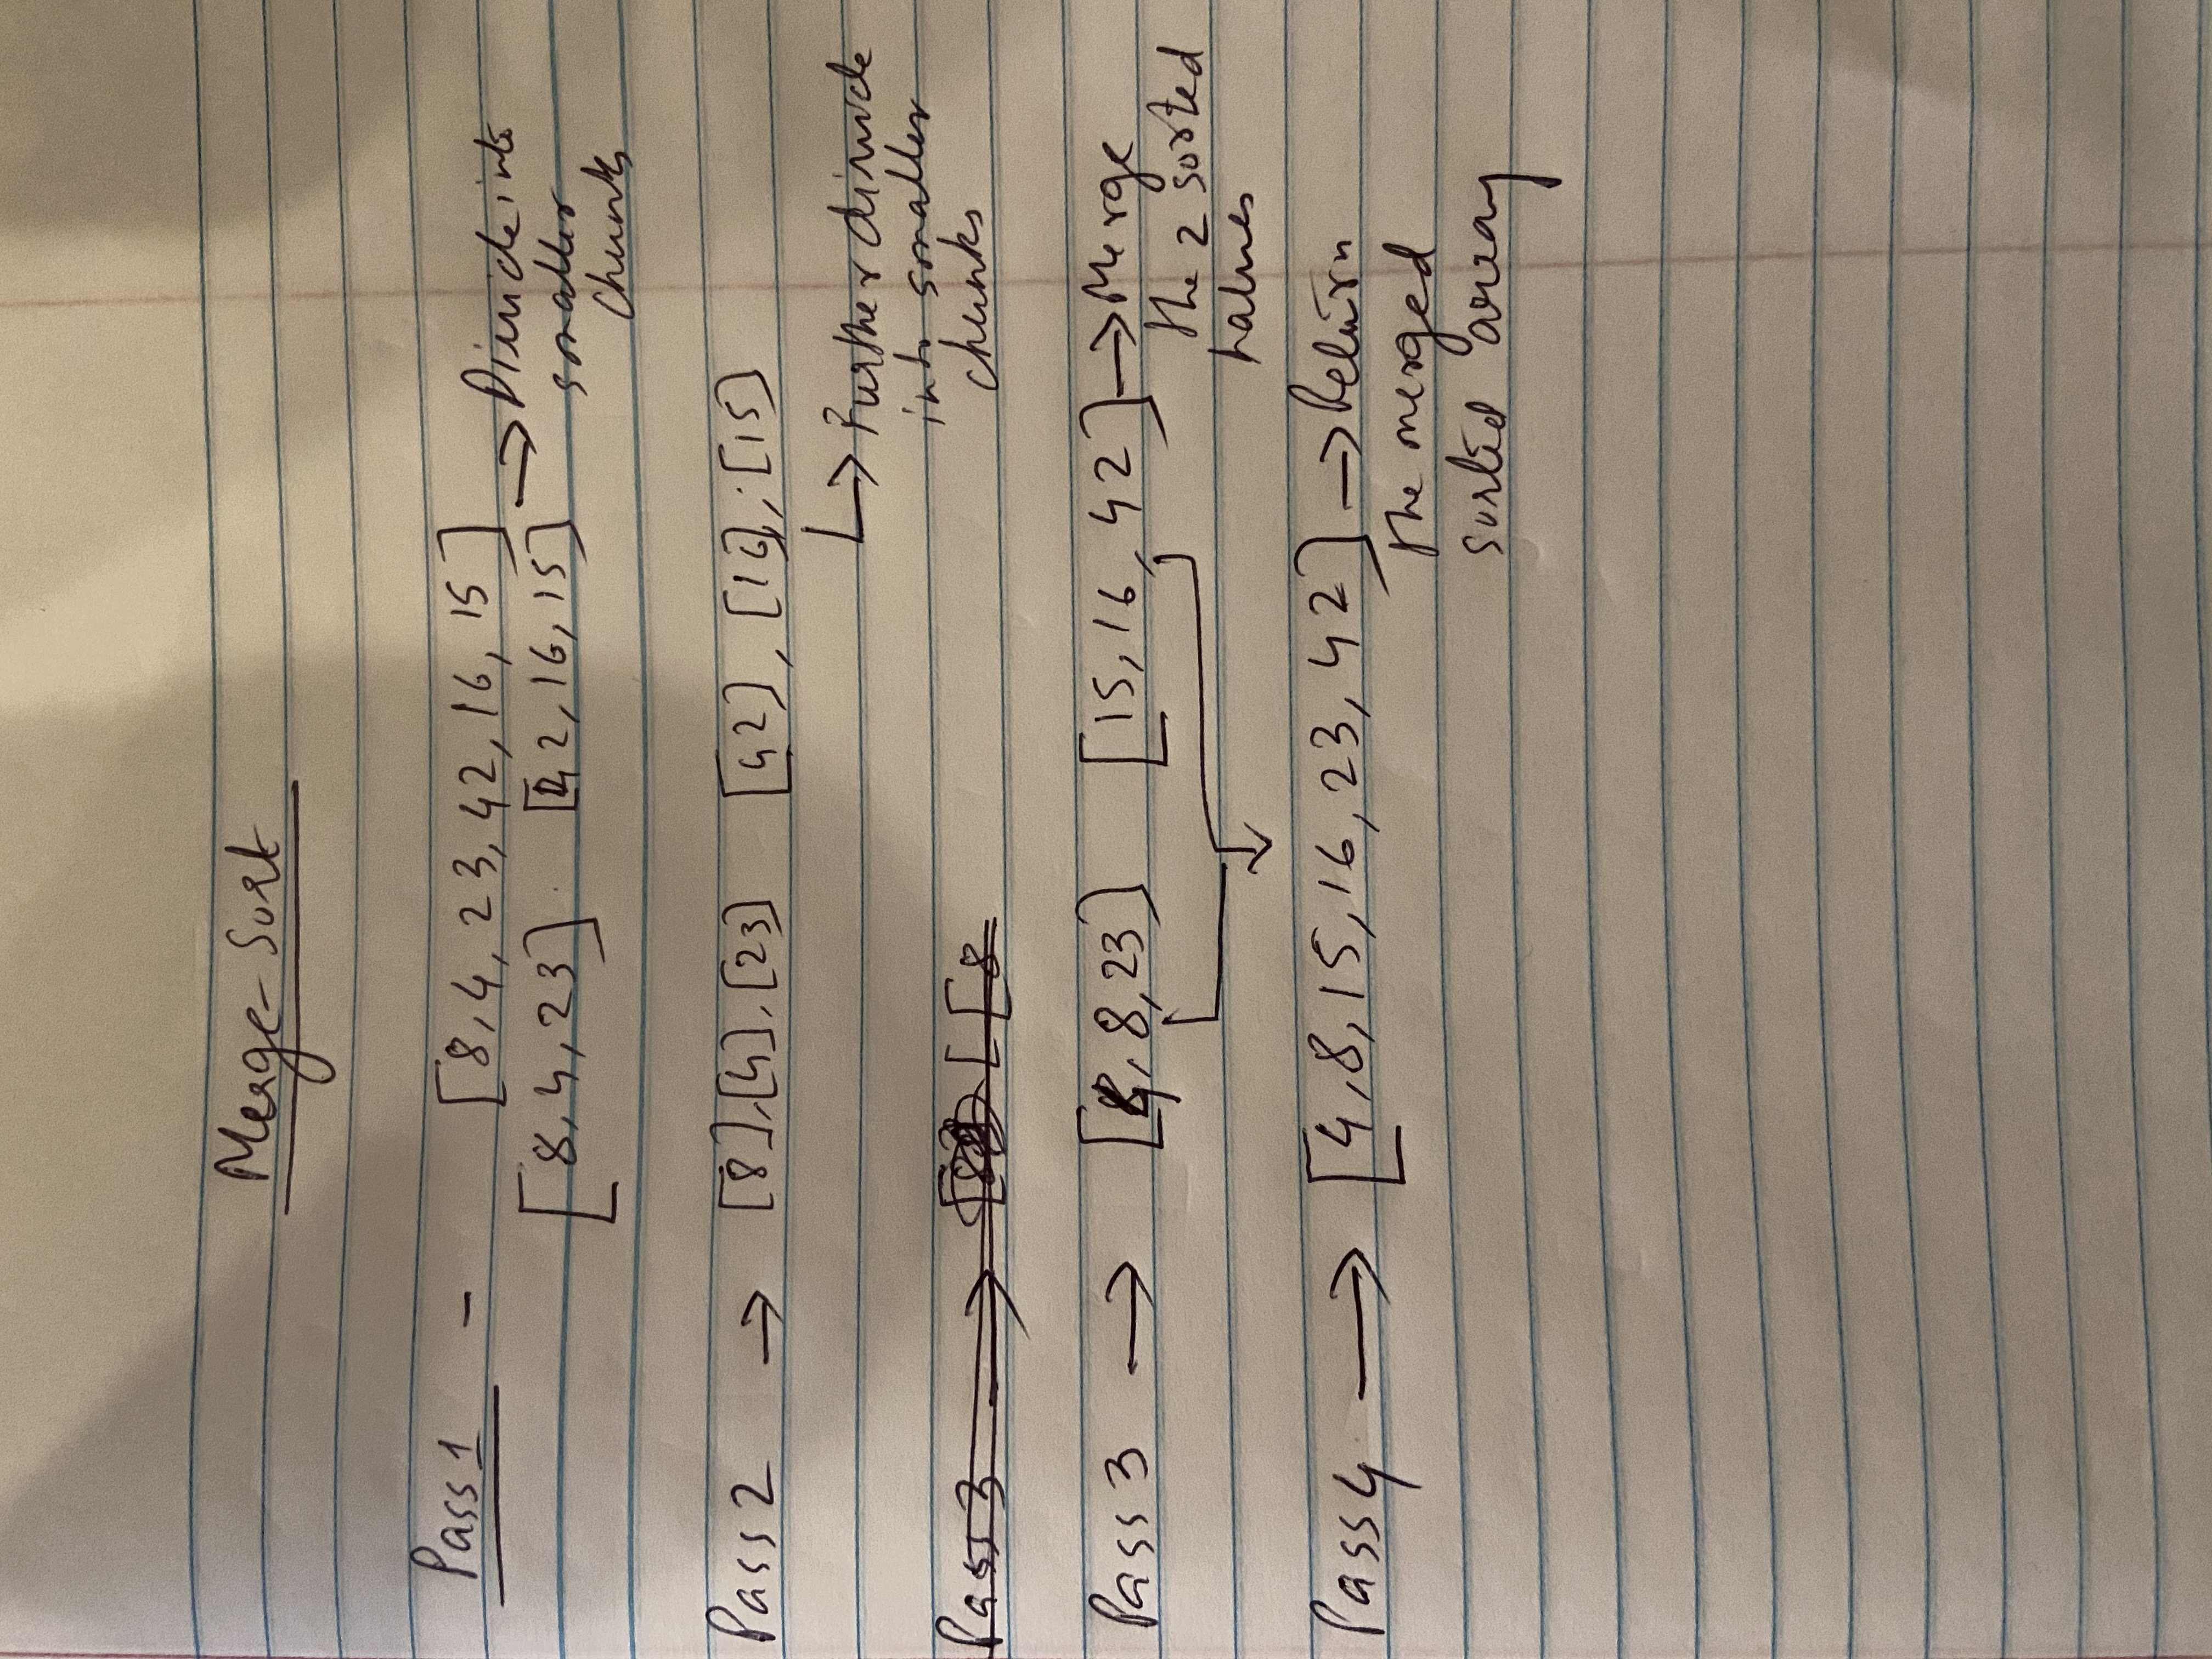 Merge-Sort
Pass 1 - [8, 4, 23, 42, 16, 15]
[8, 4, 23] [42, 16, 15] → Divide into
smaller
chunks
Pass 2 → [8], [4], [23] [42], [16], [15]
Further divide
into smaller
chunks
Pass 3 → [ [ [8
Pass 3 → [4, 8, 23] [15, 16, 42] → Merge
the 2 sorted
halves
Pass 4 → [4, 8, 15, 16, 23, 42] → Return
the merged
sorted array